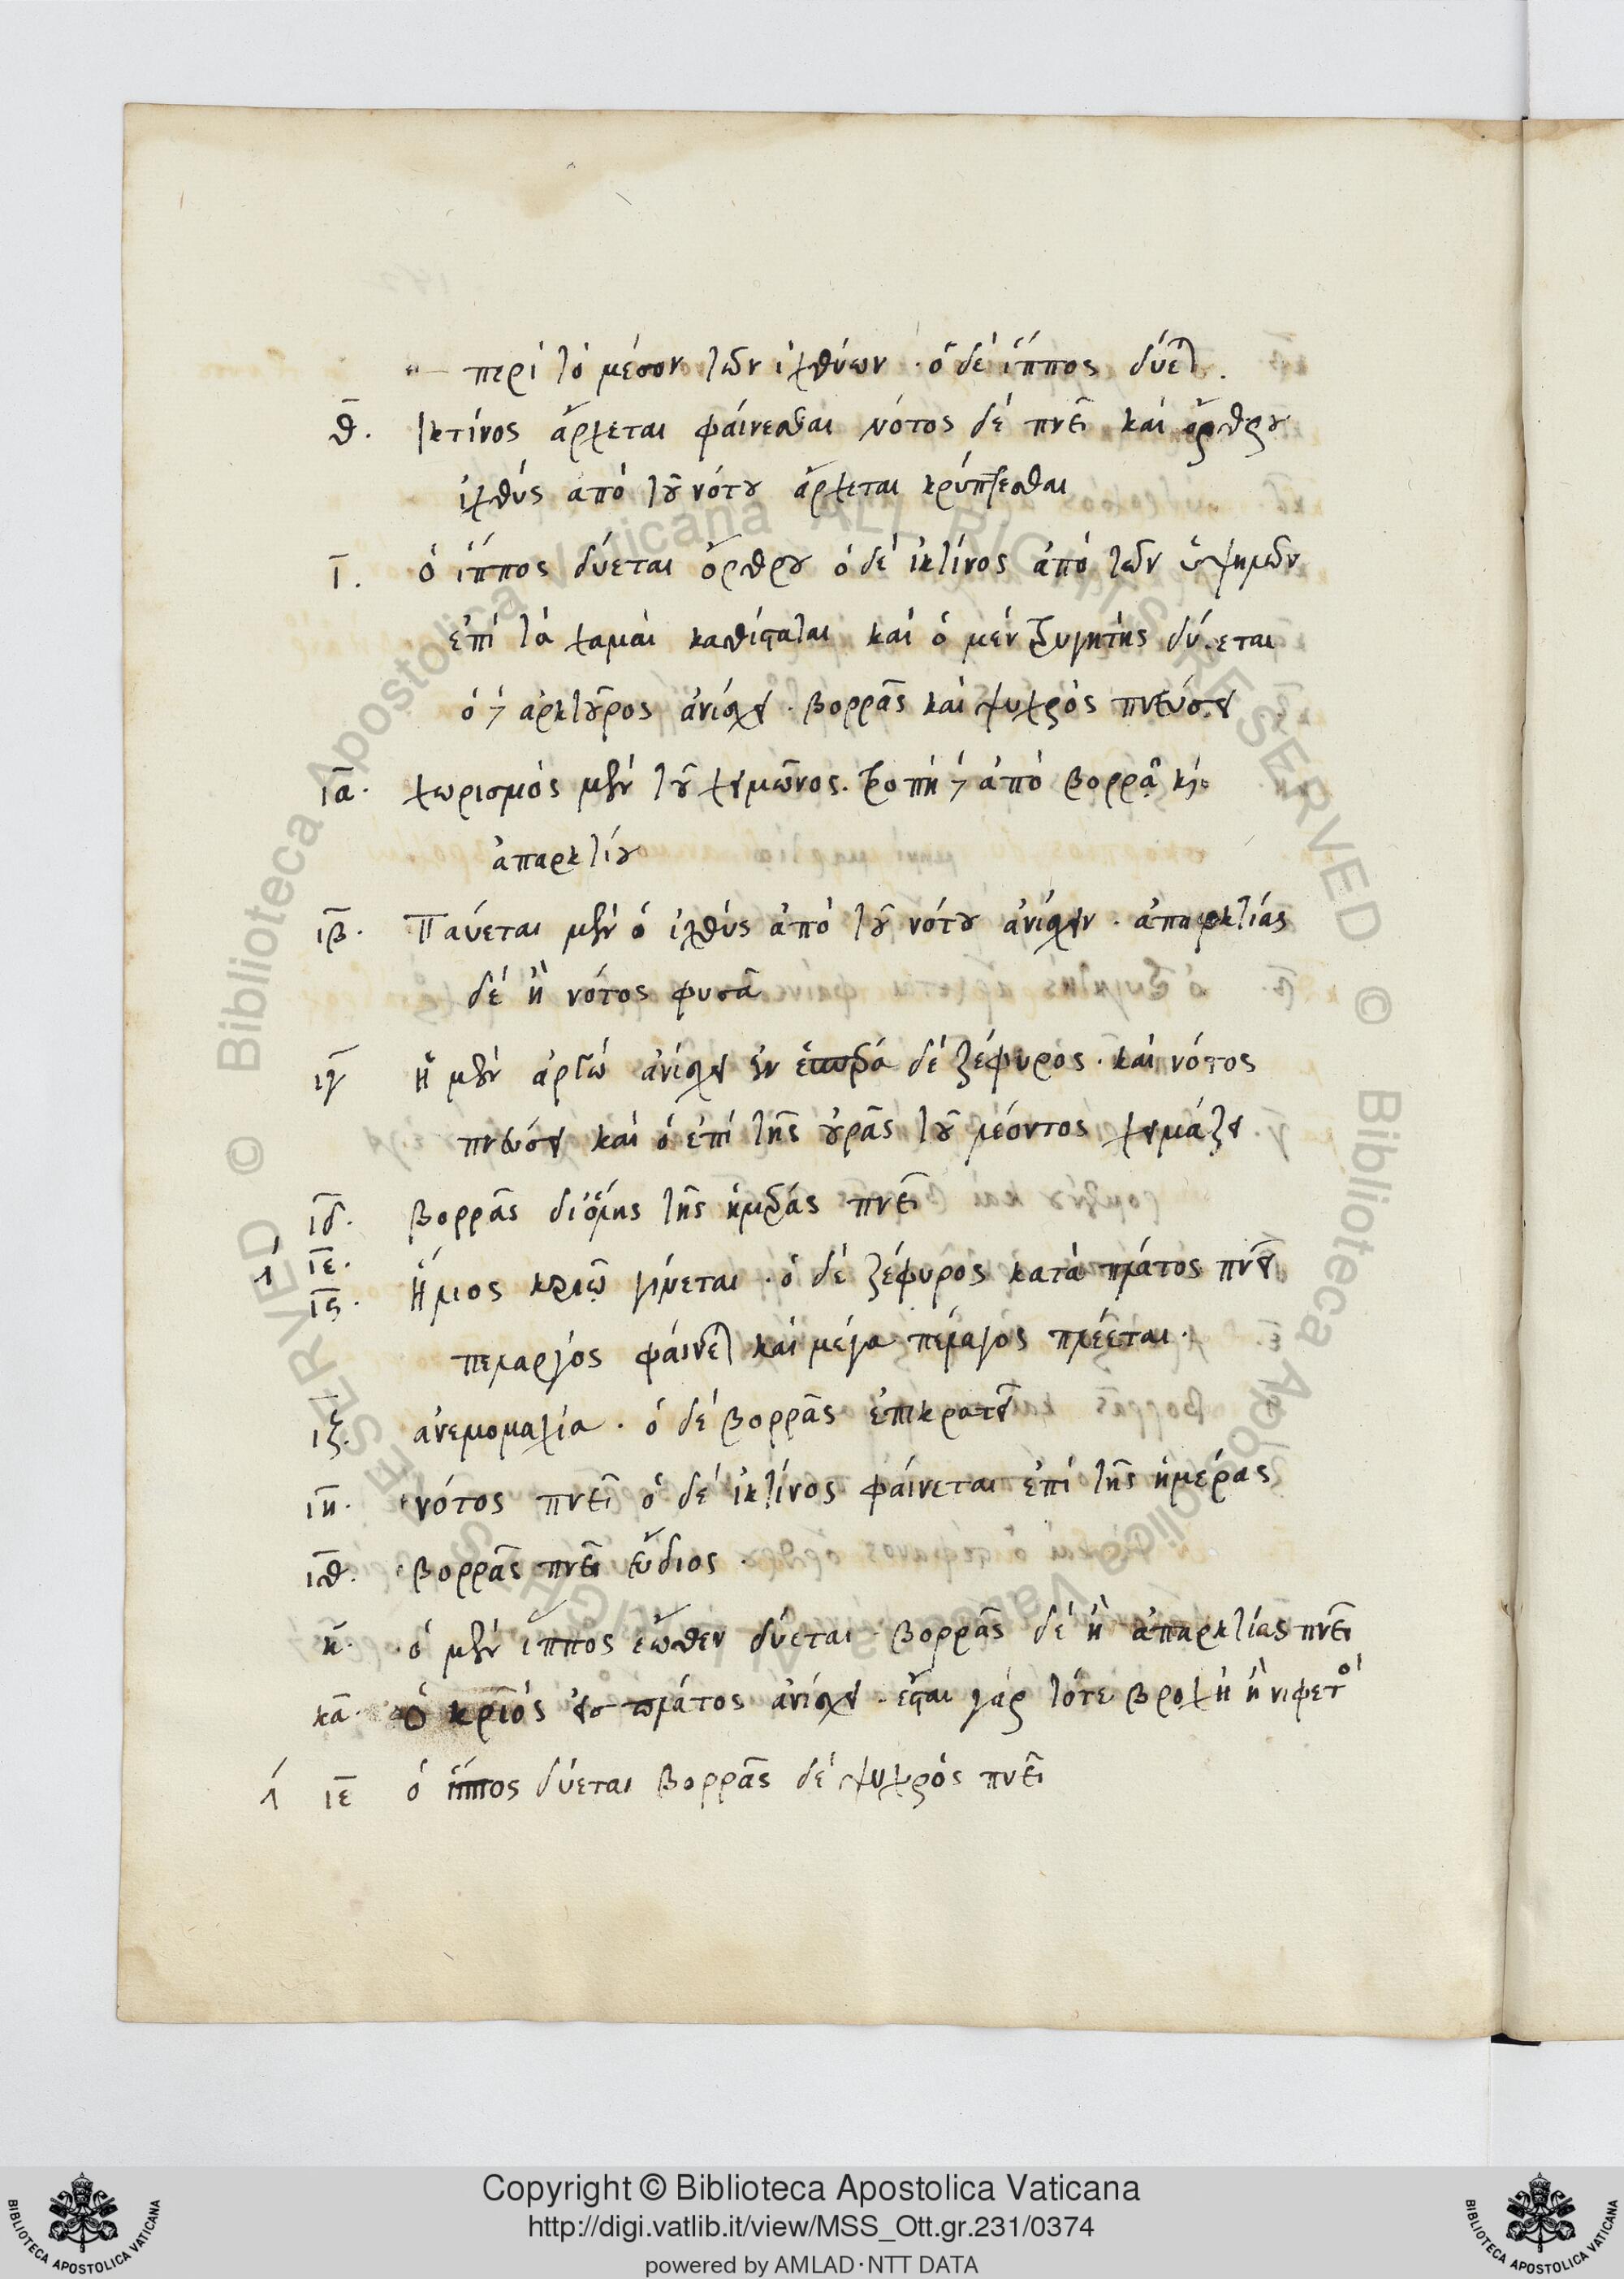 περὶ τὸ μέσον τῶν ἰχθύων · ὁ δὲ ἵππος δύετ.
θ. Ἰκτίνος ἄρχεται φαίνεσθαι νότος δὲ πνεῖ καὶ ὄρθρου
ἰχθὺς ἀπὸ τοῦ νότου ἄρχεται κρύπτεσθαι
ι. ὁ ἵππος δύεται ὄρθρου ὁ δὲ ἰκτίνος ἀπὸ τῶν ὑψηλῶν
ἐπὶ τὰ χαμαὶ καθίσταται καὶ ὁ μὲν τρυγητὴς δύεται
ὁ δὲ ἀρκτοῦρος ἀνίσχει · βορρᾶς καὶ ψυχρὸς πνεύσει
ια. χωρισμὸς μὲν τοῦ χειμῶνος. τροπὴ δὲ ἀπὸ βορρᾶ καὶ
ἀπαρκτίου
ιβ. Παύεται μὲν ὁ ἰχθὺς ἀπὸ τοῦ νότου ἀνίσχειν · ἀπαρκτίας
δὲ ἢ νότος φυσᾶ
ιγ ἡ μὲν ἀργὼ ἀνίσχει ἐν δὲ ζέφυρος · καὶ νότος
πνεύσει καὶ ὁ ἐπὶ τῆς οὐρᾶς τοῦ λέοντος χειμάζει
ιδ. βορρᾶς δι' ὅλης τῆς ἡμέρας πνεῖ
λ ιε.
ις. Ἥλιος κριῷ γίνεται · ὁ δὲ ζέφυρος κατὰ πλάτος πνεῖ
πελαργὸς φαίνετ καὶ μέγα πέλαγος πλέεται ·
ιζ. ἀνεμομαχία · ὁ δὲ βορρᾶς ἐπικρατεῖ
ιη. νότος πνεῖ ὁ δὲ ἰκτίνος φαίνεται ἐπὶ τῆς ἡμέρας
ιθ. βορρᾶς πνεῖ εὔδιος ·
κ. ὁ μὲν ἵππος ἕωθεν δύεται · βορρᾶς δὲ ἢ ἀπαρκτίας πνεῖ
κα. ὁ κριὸς εἰς πλάτος ἀνίσχει · ἔσται γὰρ τότε βροχὴ ἢ νιφετὸ
λ ιε ὁ ἵππος δύεται βορρᾶς δὲ ψυχρὸς πνεῖ
Copyright © Biblioteca Apostolica Vaticana
http://digi.vatlib.it/view/MSS_Ott.gr.231/0374
powered by AMLAD·NTT DATA
BIBLIOTECA APOSTOLICA VATICANA
BIBLIOTECA APOSTOLICA VATICANA
© Biblioteca Apostolica Vaticana ALL RIGHTS RESERVED © Biblioteca Apostolica Vaticana ALL RIGHTS RESERVED